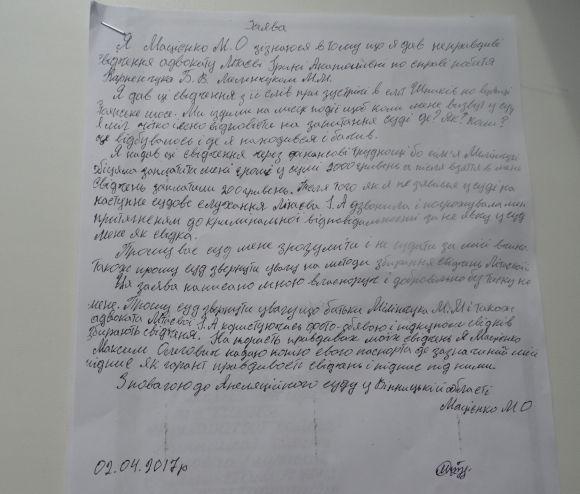 Заява
Я Маціенко М.О зізнаюся в тому що я дав неправдиві
свідчення адвокату Мітаєвї Ірині Анатоліївні по справе побиття
Б.В М.М.
Я дав ці свідчення з її слів при зустрічі в
Хотинське шосе. Ми їздили на місце події щоб коли мене визвут у суд
я міг чітко ясно відповісти на запитання судді де? Як? коли?
це відбувалось і де я находився і бачив.
Я надав ці свідчення через фінансові труднощі бо сім'я
обіцяла заплатити мені гроші у сумі 2000 гривень а після взяття в мене
свідчень заплатили 200 гривень. Після того як я не заявився у суд на
наступне судове слухання Мітаєва І.А дзвонила і погрожувала мені
притягненням до криминальної відповідальності за не явку у суд
мене як свідка.
Прошу вас суд мене зрозуміти і не судити за мої
Також прошу суд звернути увагу на методи збирання свідчень Мітаєвой
Ця заява написана мною власноруч і добровільно без тиску на
мене. Прошу суд звернути увагу що батьки М.М і також
адвоката Мітаєвої І.А користуючись і підкупом свідків
збирають свідчення. На користь правдивих моїх свідчень Я Маціенко
Максим Олегович надаю копію свого паспорта де зазначений мій
підпис як гарант правдивості свідчань і підпис під ними.
З повагою до Апеляційного суду у Вінницькій області
Маціенко М.О
02.04.2017р